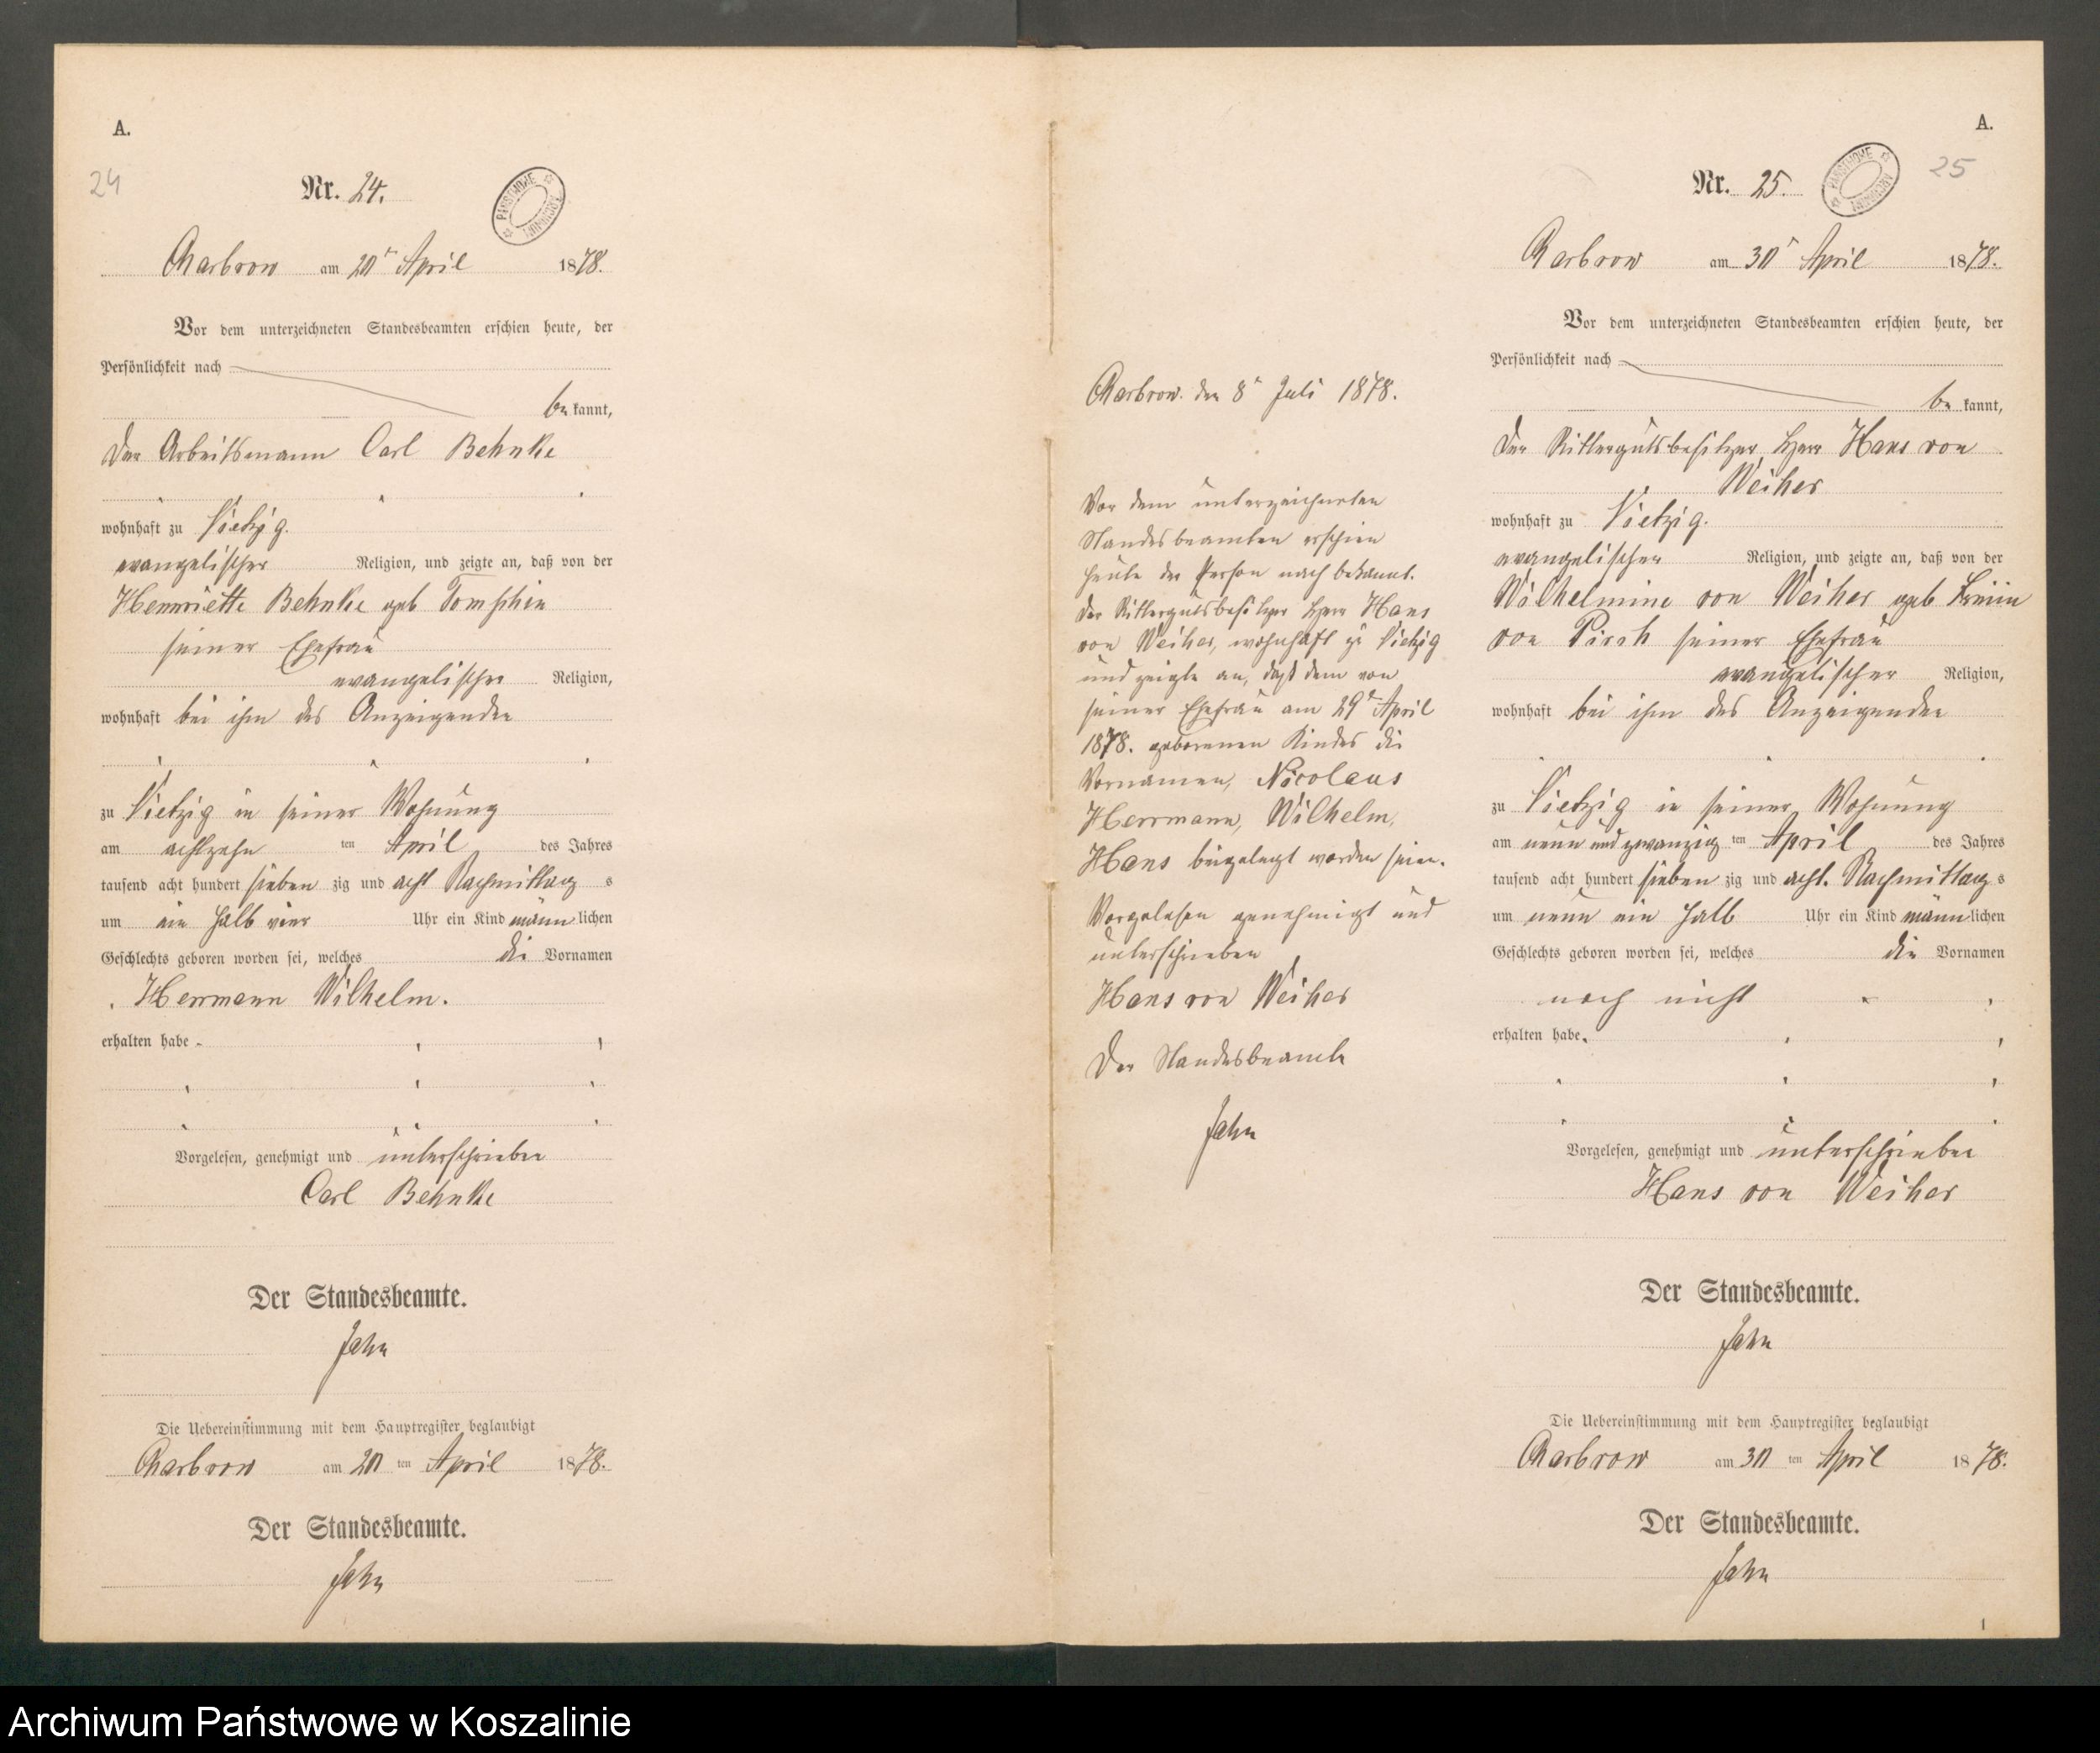 A.
24
Nr. 24.
PAŃSTWOWE ARCHIWUM
Charbrow am 20t April 1878.
Vor dem unterzeichneten Standesbeamten erschien heute, der
Persönlichkeit nach
be kannt,
der Arbeitsmann Carl Behnke
wohnhaft zu Vietzig.
evangelischer Religion, und zeigte an, daß von der
Henriette Behnke geb
seiner Ehefrau
evangelischer Religion,
wohnhaft bei ihm des Anzeigenden
zu Vietzig in seiner Wohnung
am achtzehn ten April des Jahres
tausend acht hundert sieben zig und acht Nachmittag s
um ein halb vier Uhr ein Kind männ lichen
Geschlechts geboren worden sei, welches die Vornamen
Herrmann Wilhelm.
erhalten habe
Vorgelesen, genehmigt und unterschrieben
Carl Behnke
Der Standesbeamte.
Jahn
Die Uebereinstimmung mit dem Hauptregister beglaubigt
Charbrow am 20 ten April 1878.
Der Standesbeamte.
Jahn
Charbrow. den 8t Juli 1878.
Vor dem unterzeichneten
Standesbeamten erschien
heute der Person nach bekannt.
der Rittergutsbesitzer Herr Hans
von Weiher, wohnhaft zu Vietzig
und zeigte an, daß dem von
seiner Ehefrau am 29t April
1878. geborenen Kindes die
Vornamen, Nicolaus
Herrmann, Wilhelm,
Hans beigelegt worden seien.
Vorgelesen genehmigt und
unterschrieben
Hans von Weiher
Der Standesbeamte
Jahn
A.
25
Nr. 25.
PAŃSTWOWE ARCHIWUM
Charbrow am 30t April 1878.
Vor dem unterzeichneten Standesbeamten erschien heute, der
Persönlichkeit nach
be kannt,
der Rittergutsbesitzer, Herr Hans von
Weiher
wohnhaft zu Vietzig.
evangelischer Religion, und zeigte an, daß von der
Wilhelmine von Weiher geb
von Pirch seiner Ehefrau
evangelischer Religion,
wohnhaft bei ihm des Anzeigenden
zu Vietzig in seiner Wohnung
am neun und zwanzig ten April des Jahres
tausend acht hundert sieben zig und acht. Nachmittag s
um neun ein halb Uhr ein Kind männ lichen
Geschlechts geboren worden sei, welches die Vornamen
noch nicht
erhalten habe.
Vorgelesen, genehmigt und unterschrieben
Hans von Weiher
Der Standesbeamte.
Jahn
Die Uebereinstimmung mit dem Hauptregister beglaubigt
Charbrow am 30 ten April 1878.
Der Standesbeamte.
Jahn
1
Archiwum Państwowe w Koszalinie